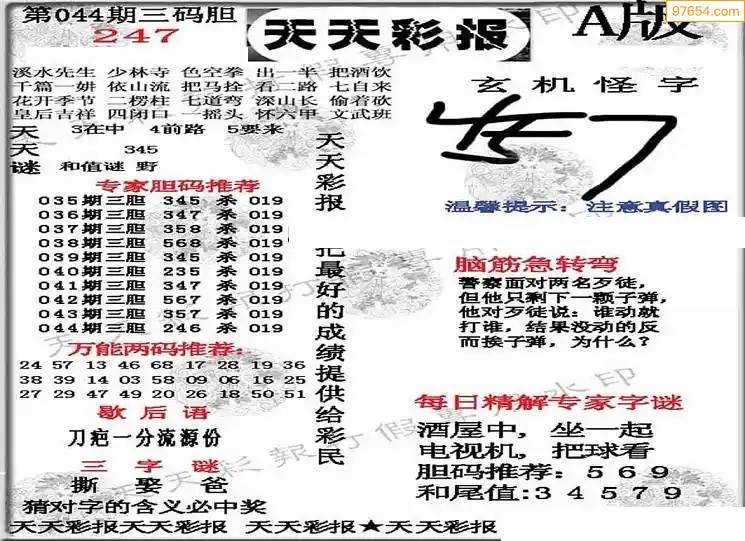 第044期三码胆
247
天天彩报
A版
97654.com
溪水先生 少林寺 色空拳 出一半 把酒饮
千篇一姘 依山流 把马拴 看二路 七自来
花开季节 二楞柱 七道弯 深山长 偷着砍
皇后吉祥 四闭口 一摇头 怀六甲 文武班
天 3在中 4前路 5要来
天 345
谜 和值谜 野
专家胆码推荐
035期三胆 345 杀 019
036期三胆 347 杀 019
037期三胆 358 杀 019
038期三胆 568 杀 019
039期三胆 345 杀 019
040期三胆 235 杀 019
041期三胆 347 杀 019
042期三胆 567 杀 019
043期三胆 357 杀 019
044期三胆 246 杀 019
万能两码推荐:
24 57 13 46 68 17 28 19 36
38 39 14 03 58 09 06 16 25
27 29 47 49 20 26 18 50 51
歇后语
刀疤一分流源份
三字谜
撕 娶 爸
猜对字的含义必中奖
天天彩报天天彩报 天天彩报★天天彩报
天天彩报
把最好的成绩提供给彩民
玄机怪字
457
温馨提示:注意真假图
脑筋急转弯
警察面对两名歹徒,
但他只剩下一颗子弹,
他对歹徒说:谁动就
打谁,结果没动的反
而挨子弹,为什么?
每日精解专家字谜
酒屋中,坐一起
电视机,把球看
胆码推荐:569
和尾值:34579